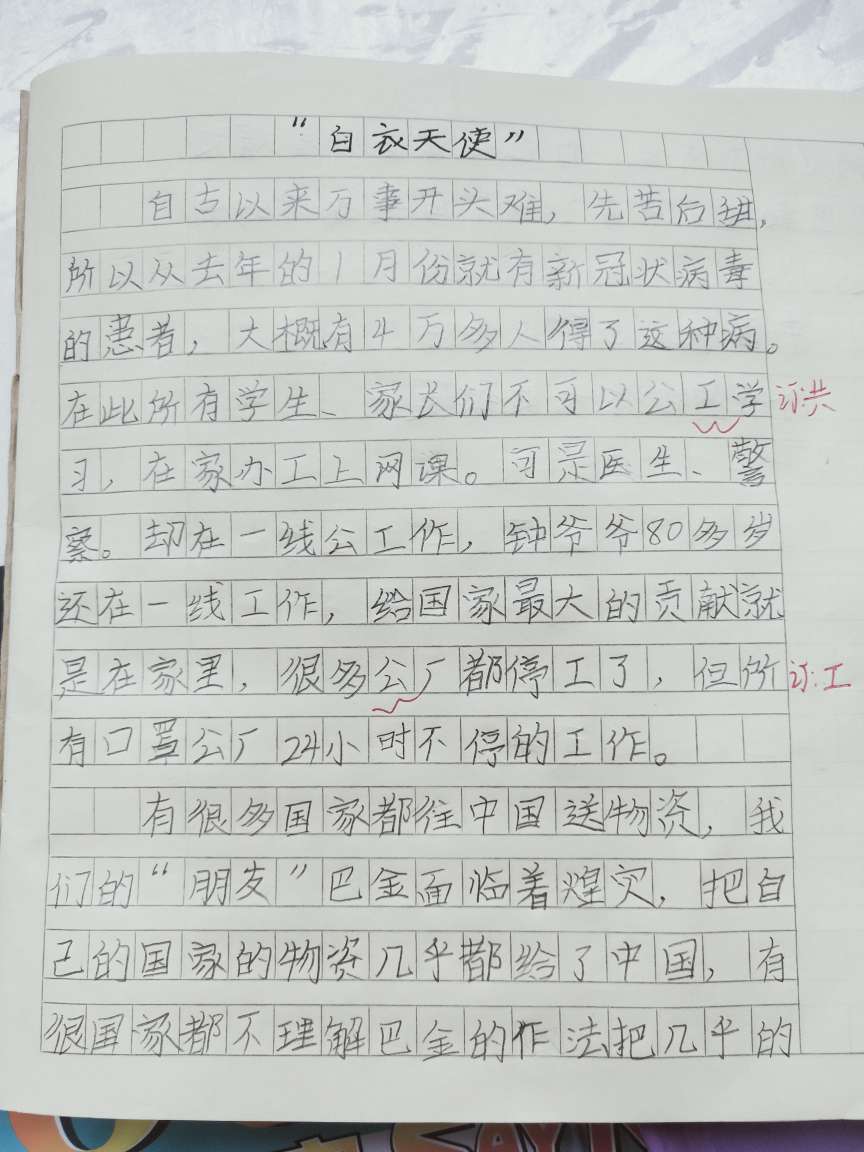 “白衣天使”
自古以来万事开头难，先苦后甜，
所以从去年的1月份就有新冠状病毒
的患者，大概有4万多人得了这种病。
在此所有学生、家长们不可以公工学 订:共
习，在家办工上网课。可是医生、警
察。却在一线公工作，钟爷爷80多岁
还在一线工作，给国家最大的贡献就
是在家里，很多公厂都停工了，但所 订:工
有口罩公厂24小时不停的工作。
有很多国家都往中国送物资，我
们的“朋友”巴金面临着煌灾，把自
己的国家的物资几乎都给了中国，有
很国家都不理解巴金的作法把几乎的